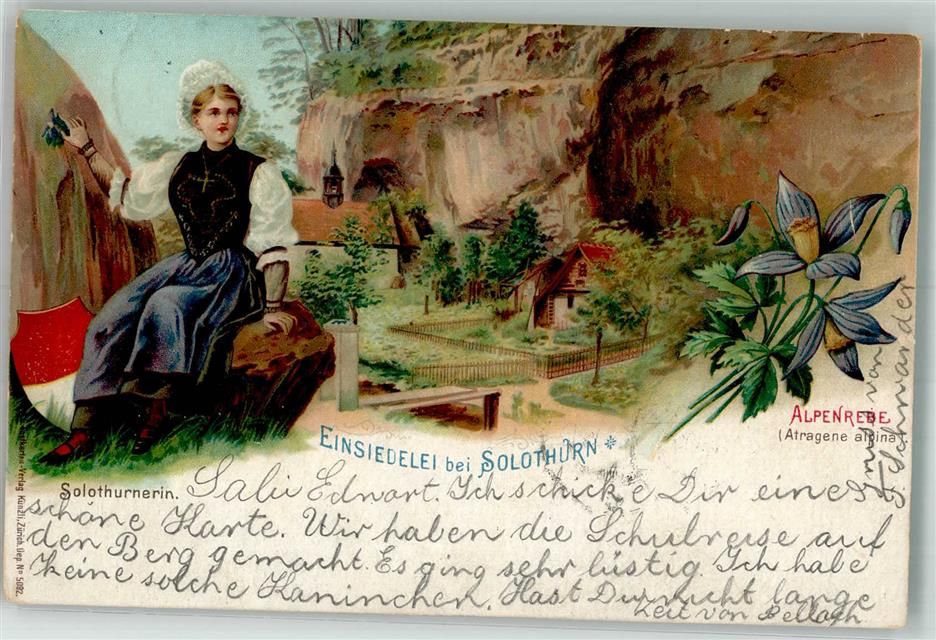 EINSIEDELEI bei SOLOTHURN
ALPENREBE
(Atragene alpina).
Solothurnerin.
Salu Edwart. Ich schicke Dir eine
schöne Karte. Wir haben die Schulreise auf
den Berg gemacht. Es ging sehr lüstig. Ich habe
keine solche Kaninchen. Hast Du nicht lange
Zeit von Bellach
von
Verlag Künzli, Zürich. Dep. No 5092.